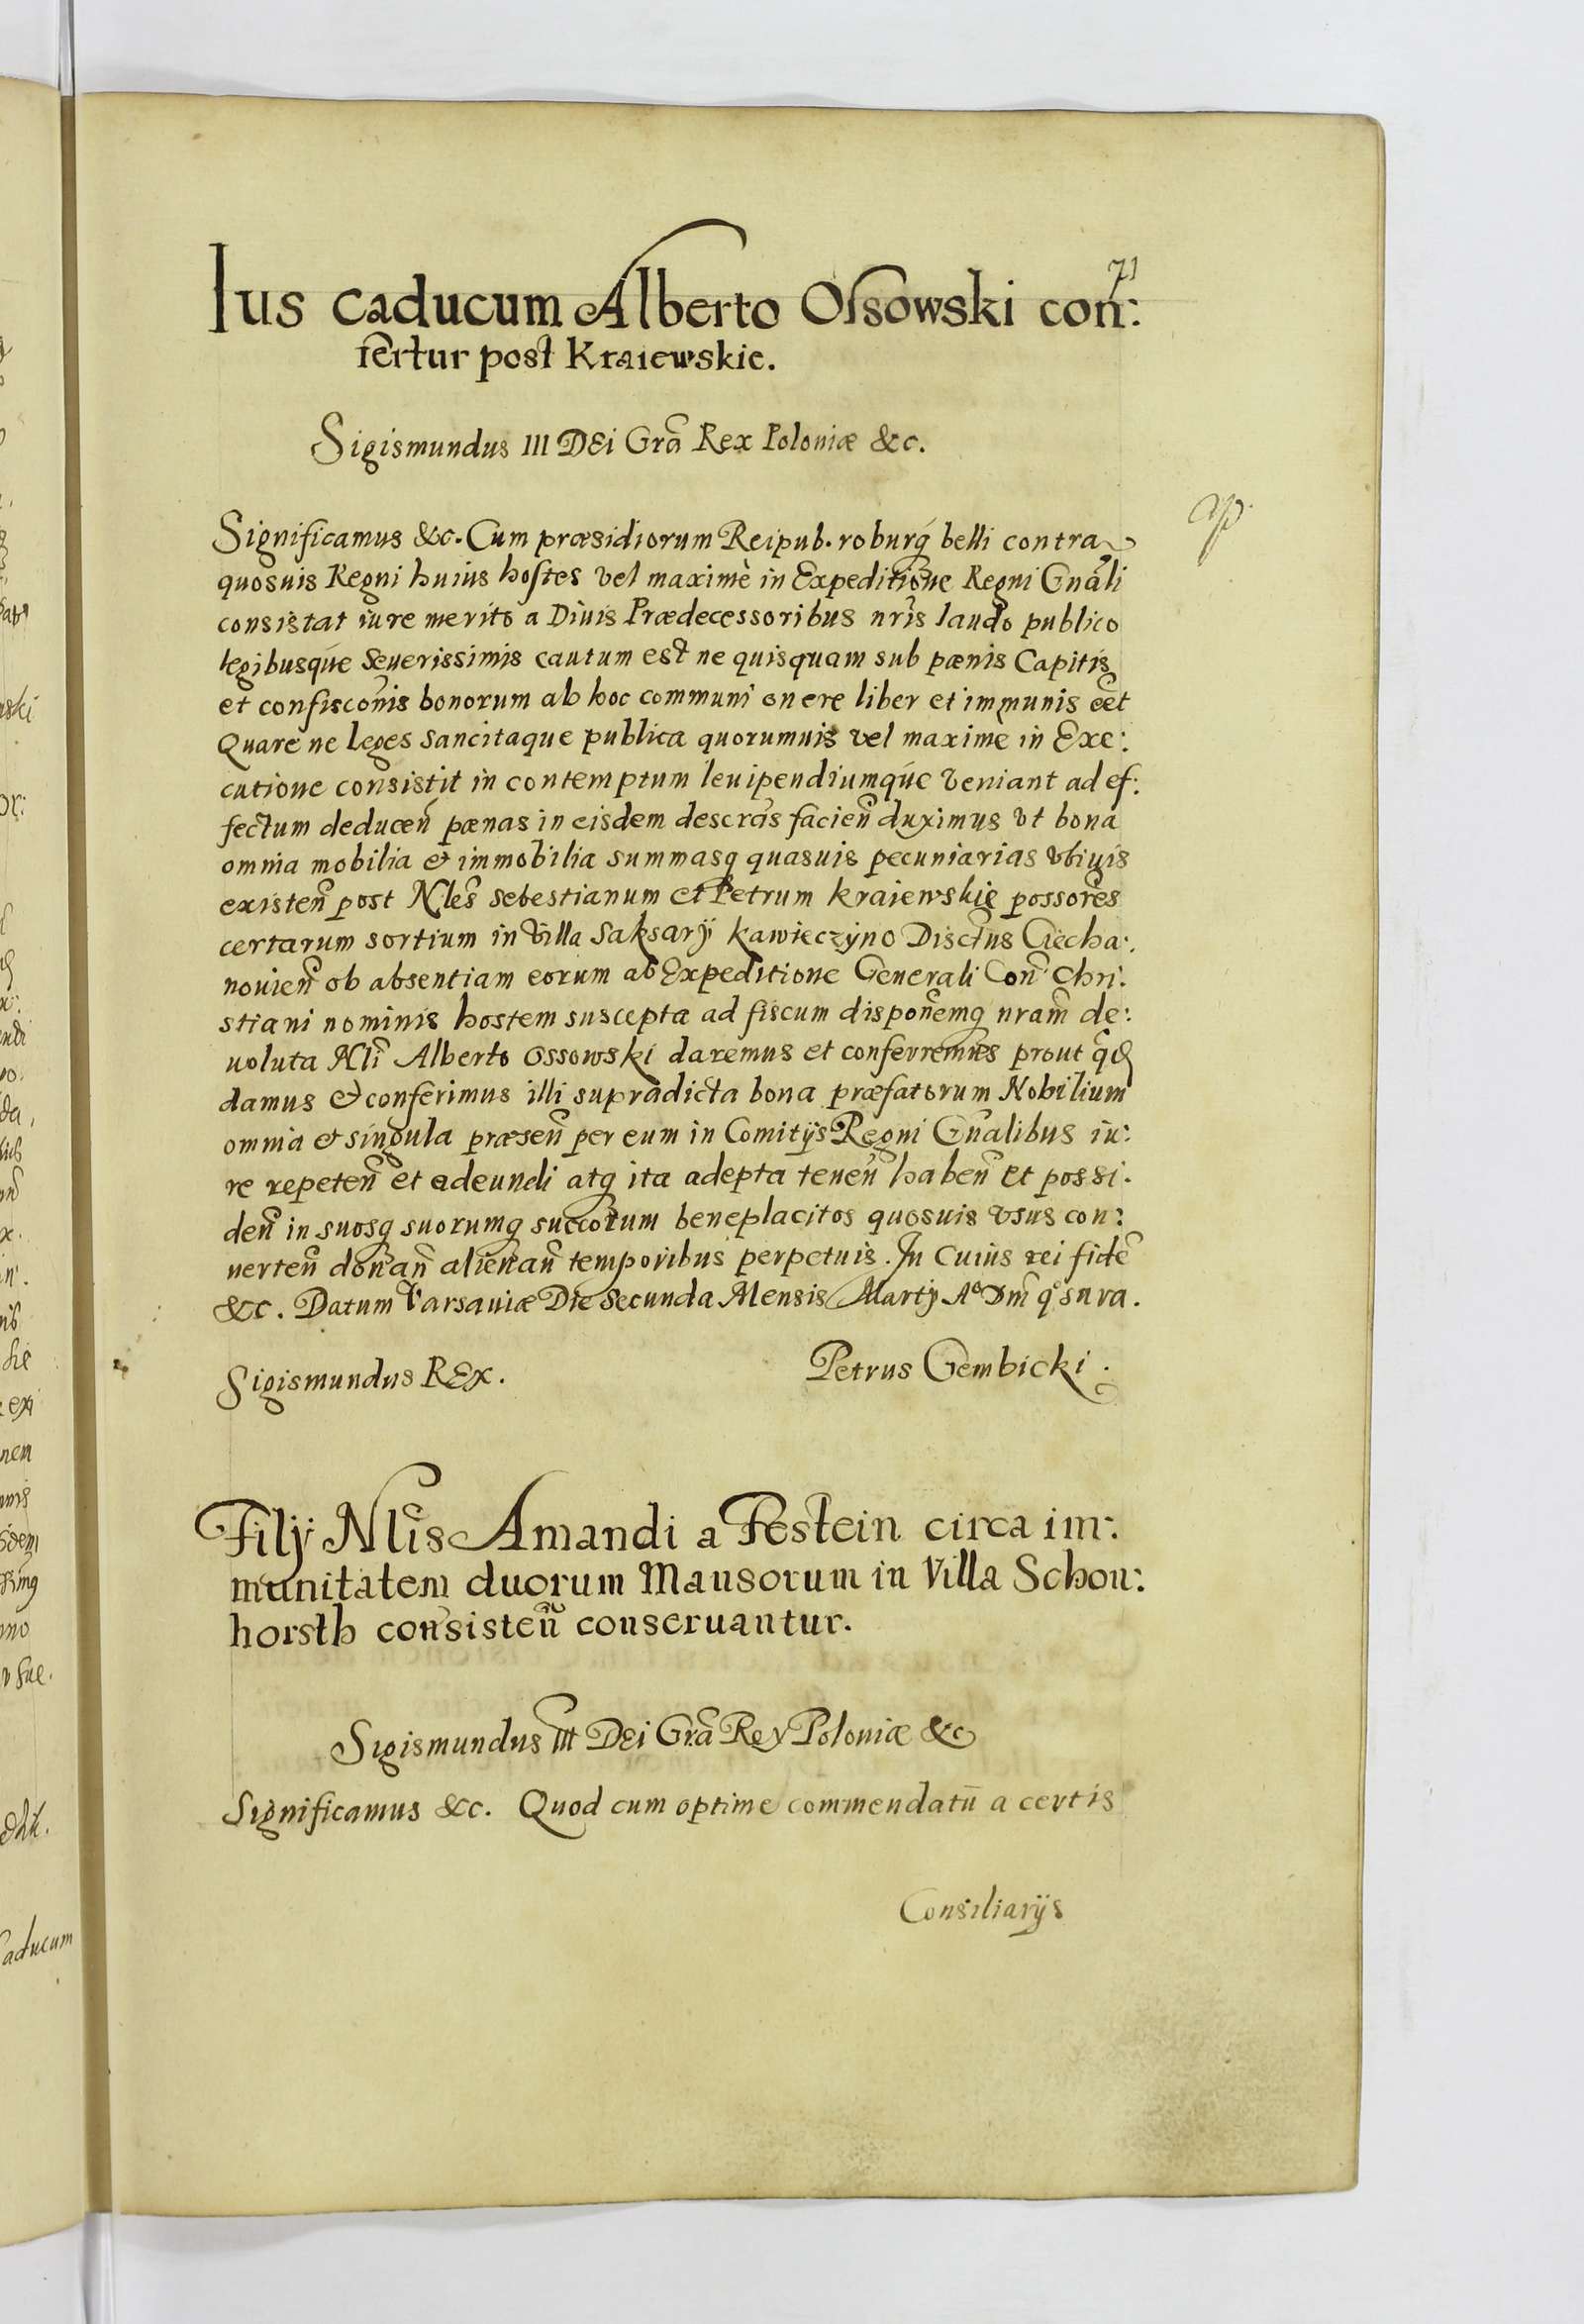 71
Ius caducum Alberto Ossowski con:
fertur post Kraiewskie.
Sigismundus III DEi Grã Rex Poloniæ &c.
ap.
Significamus &c. Cum præsidiorum Reipub. roburq́ belli contra
quosuis Regni huius hostes vel maximè in Expeditione Regni Gnãli
consistat iure merito a Diuis Prædecessoribus nr̃is laudo publico
legibusque Seuerissimis cautum est ne quisquam sub pœnis Capitis
et confiscõnis bonorum ab hoc communi onere liber et immunis eẽt
Quare ne leges Sancitaque publica quorumuis vel maximè in Exe:
cutione consistit in contemptum leuipendiumque veniant ad ef:
fectum deducen̄ pœnas in eisdem descr̃as facien̄ duximus vt bona
omnia mobilia & immobilia summasq quasuis pecuniarias vbiuis
existen̄ post Nl̃es Sebestianum et Petrum Kraiewskie possor̃es
certarum sortium in Villa Saksary Kawieczyno Disctus Ciecha:
nouien̄ ob absentiam eorum ab Expeditione Generali Con̄ Chri:
stiani nominis hostem suscepta ad fiscum dispon̄emq nram̃ de:
uoluta Nl̃i Alberto Ossowski daremus et conferremus prout qd
damus & conferimus illi supradicta bona præfatorum Nobilium
omnia & singula præsen̄ per eum in Comitijs Regni Gñalibus iu:
re repeten̄ et adeundi atq ita adepta tenen̄ haben̄ et possi:
den̄ in suosq suorumq succorum beneplacitos quosuis vsus con:
uerten̄ donan̄ alienan̄ temporibus perpetuis. In cuius rei fidẽ
&c. Datum Varsauiæ Die Secunda Mensis Martij Aº Dm̃ qº supra.
Sigismundus REx. Petrus Gembicki.
Filij Nl̃is Amandi a Pestein circa im:
munitatem duorum Mansorum in Villa Schon:
horsth consisten̄ conseruantur.
Sigismundus III DEi Grã Rex Poloniæ &c
Significamus &c. Quod cum optime commendatū a certis
Consiliarijs